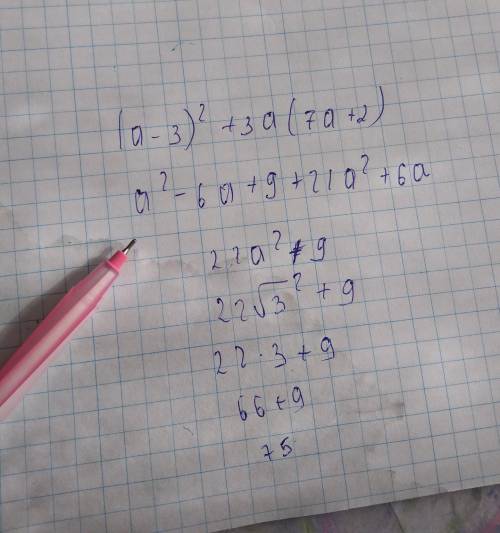 (a-3)² +3a(7a+2)
a²-6a+9+21a²+6a
22a²+9
22√3² +9
22·3+9
66+9
75